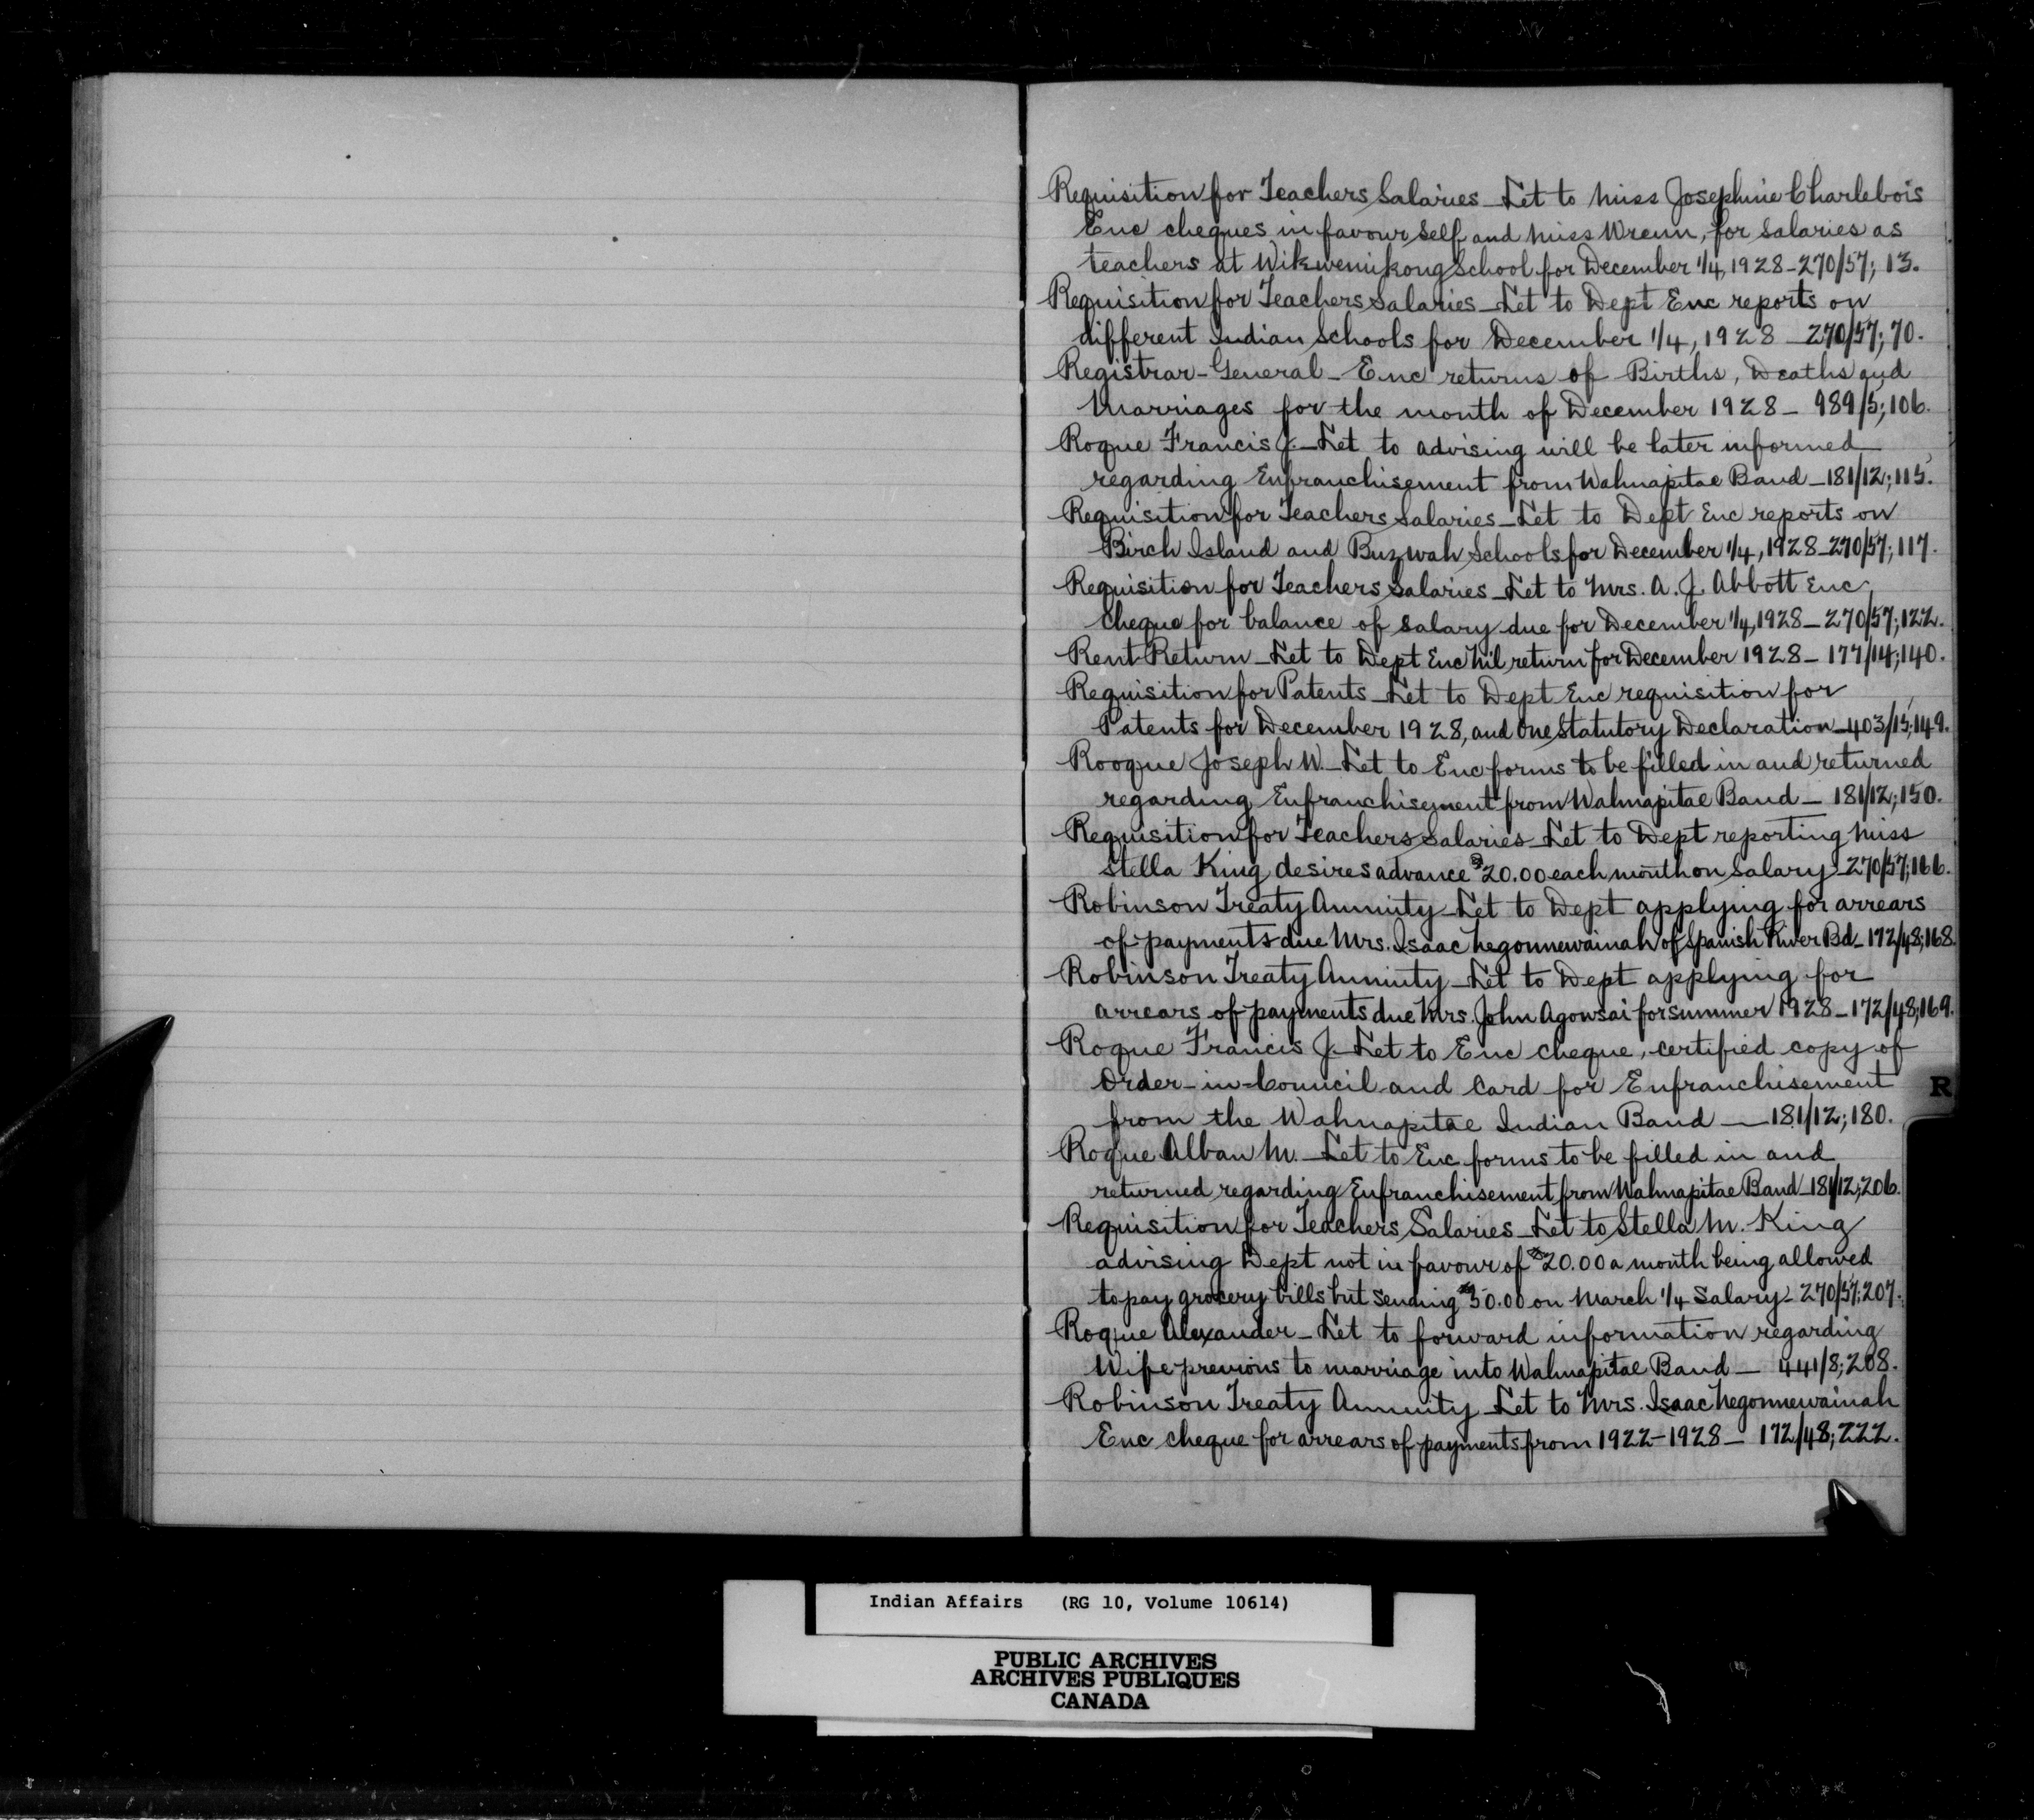 Requisition for Teachers Salaries - Let to Miss Josephine Charlebois
Enc cheques in favour self and Miss Wrenn, for salaries as
teachers at Wikwemikong School for December 1/4, 1928 - 270/57; 13.
Requisition for Teachers Salaries - Let to Dept Enc reports on
different Indian Schools for December 1/4, 1928 - 270/57; 70.
Registrar-General - Enc returns of Births, Deaths and
Marriages for the month of December 1928 - 989/5; 106.
Roque Francis J. - Let to advising will be later informed
regarding Enfranchisement from Wahnapitae Band - 181/12; 115.
Requisition for Teachers Salaries - Let to Dept Enc reports on
Birch Island and Buzwah Schools for December 1/4, 1928 - 270/57; 117.
Requisition for Teachers Salaries - Let to Mrs. A. J. Abbott Enc
cheque for balance of salary due for December 1/4, 1928 - 270/57; 122.
Rent Return - Let to Dept Enc Nil return for December 1928 - 177/14; 140.
Requisition for Patents - Let to Dept Enc requisition for
Patents for December 1928, and one Statutory Declaration - 403/15; 149.
Rooque Joseph W. - Let to Enc forms to be filled in and returned
regarding Enfranchisement from Wahnapitae Band - 181/12; 150.
Requisition for Teachers Salaries - Let to Dept reporting Miss
Stella King desires advance $20.00 each month on salary - 270/57; 166.
Robinson Treaty Annuity - Let to Dept applying for arrears
of payments due Mrs. Isaac Negonnewainah of Spanish River Bd - 172/48; 168.
Robinson Treaty Annuity - Let to Dept applying for
arrears of payments due Mrs. John Agowsai for summer 1928 - 172/48; 169.
Roque Francis J. - Let to Enc cheque, certified copy of
Order-in-Council and Card for Enfranchisement
from the Wahnapitae Indian Band - 181/12; 180.
Roque Alban M. - Let to Enc forms to be filled in and
returned regarding Enfranchisement from Wahnapitae Band - 181/12; 206.
Requisition for Teachers Salaries - Let to Stella M. King
advising Dept not in favour of $20.00 a month being allowed
to pay grocery bills but sending $50.00 on March 1/4 Salary - 270/57; 207.
Roque Alexander - Let to forward information regarding
Wife previous to marriage into Wahnapitae Band - 441/8; 208.
Robinson Treaty Annuity - Let to Mrs. Isaac Negonnewainah
Enc cheque for arrears of payments from 1922-1928 - 172/48; 222.
R
Indian Affairs (RG 10, Volume 10614)
PUBLIC ARCHIVES
ARCHIVES PUBLIQUES
CANADA